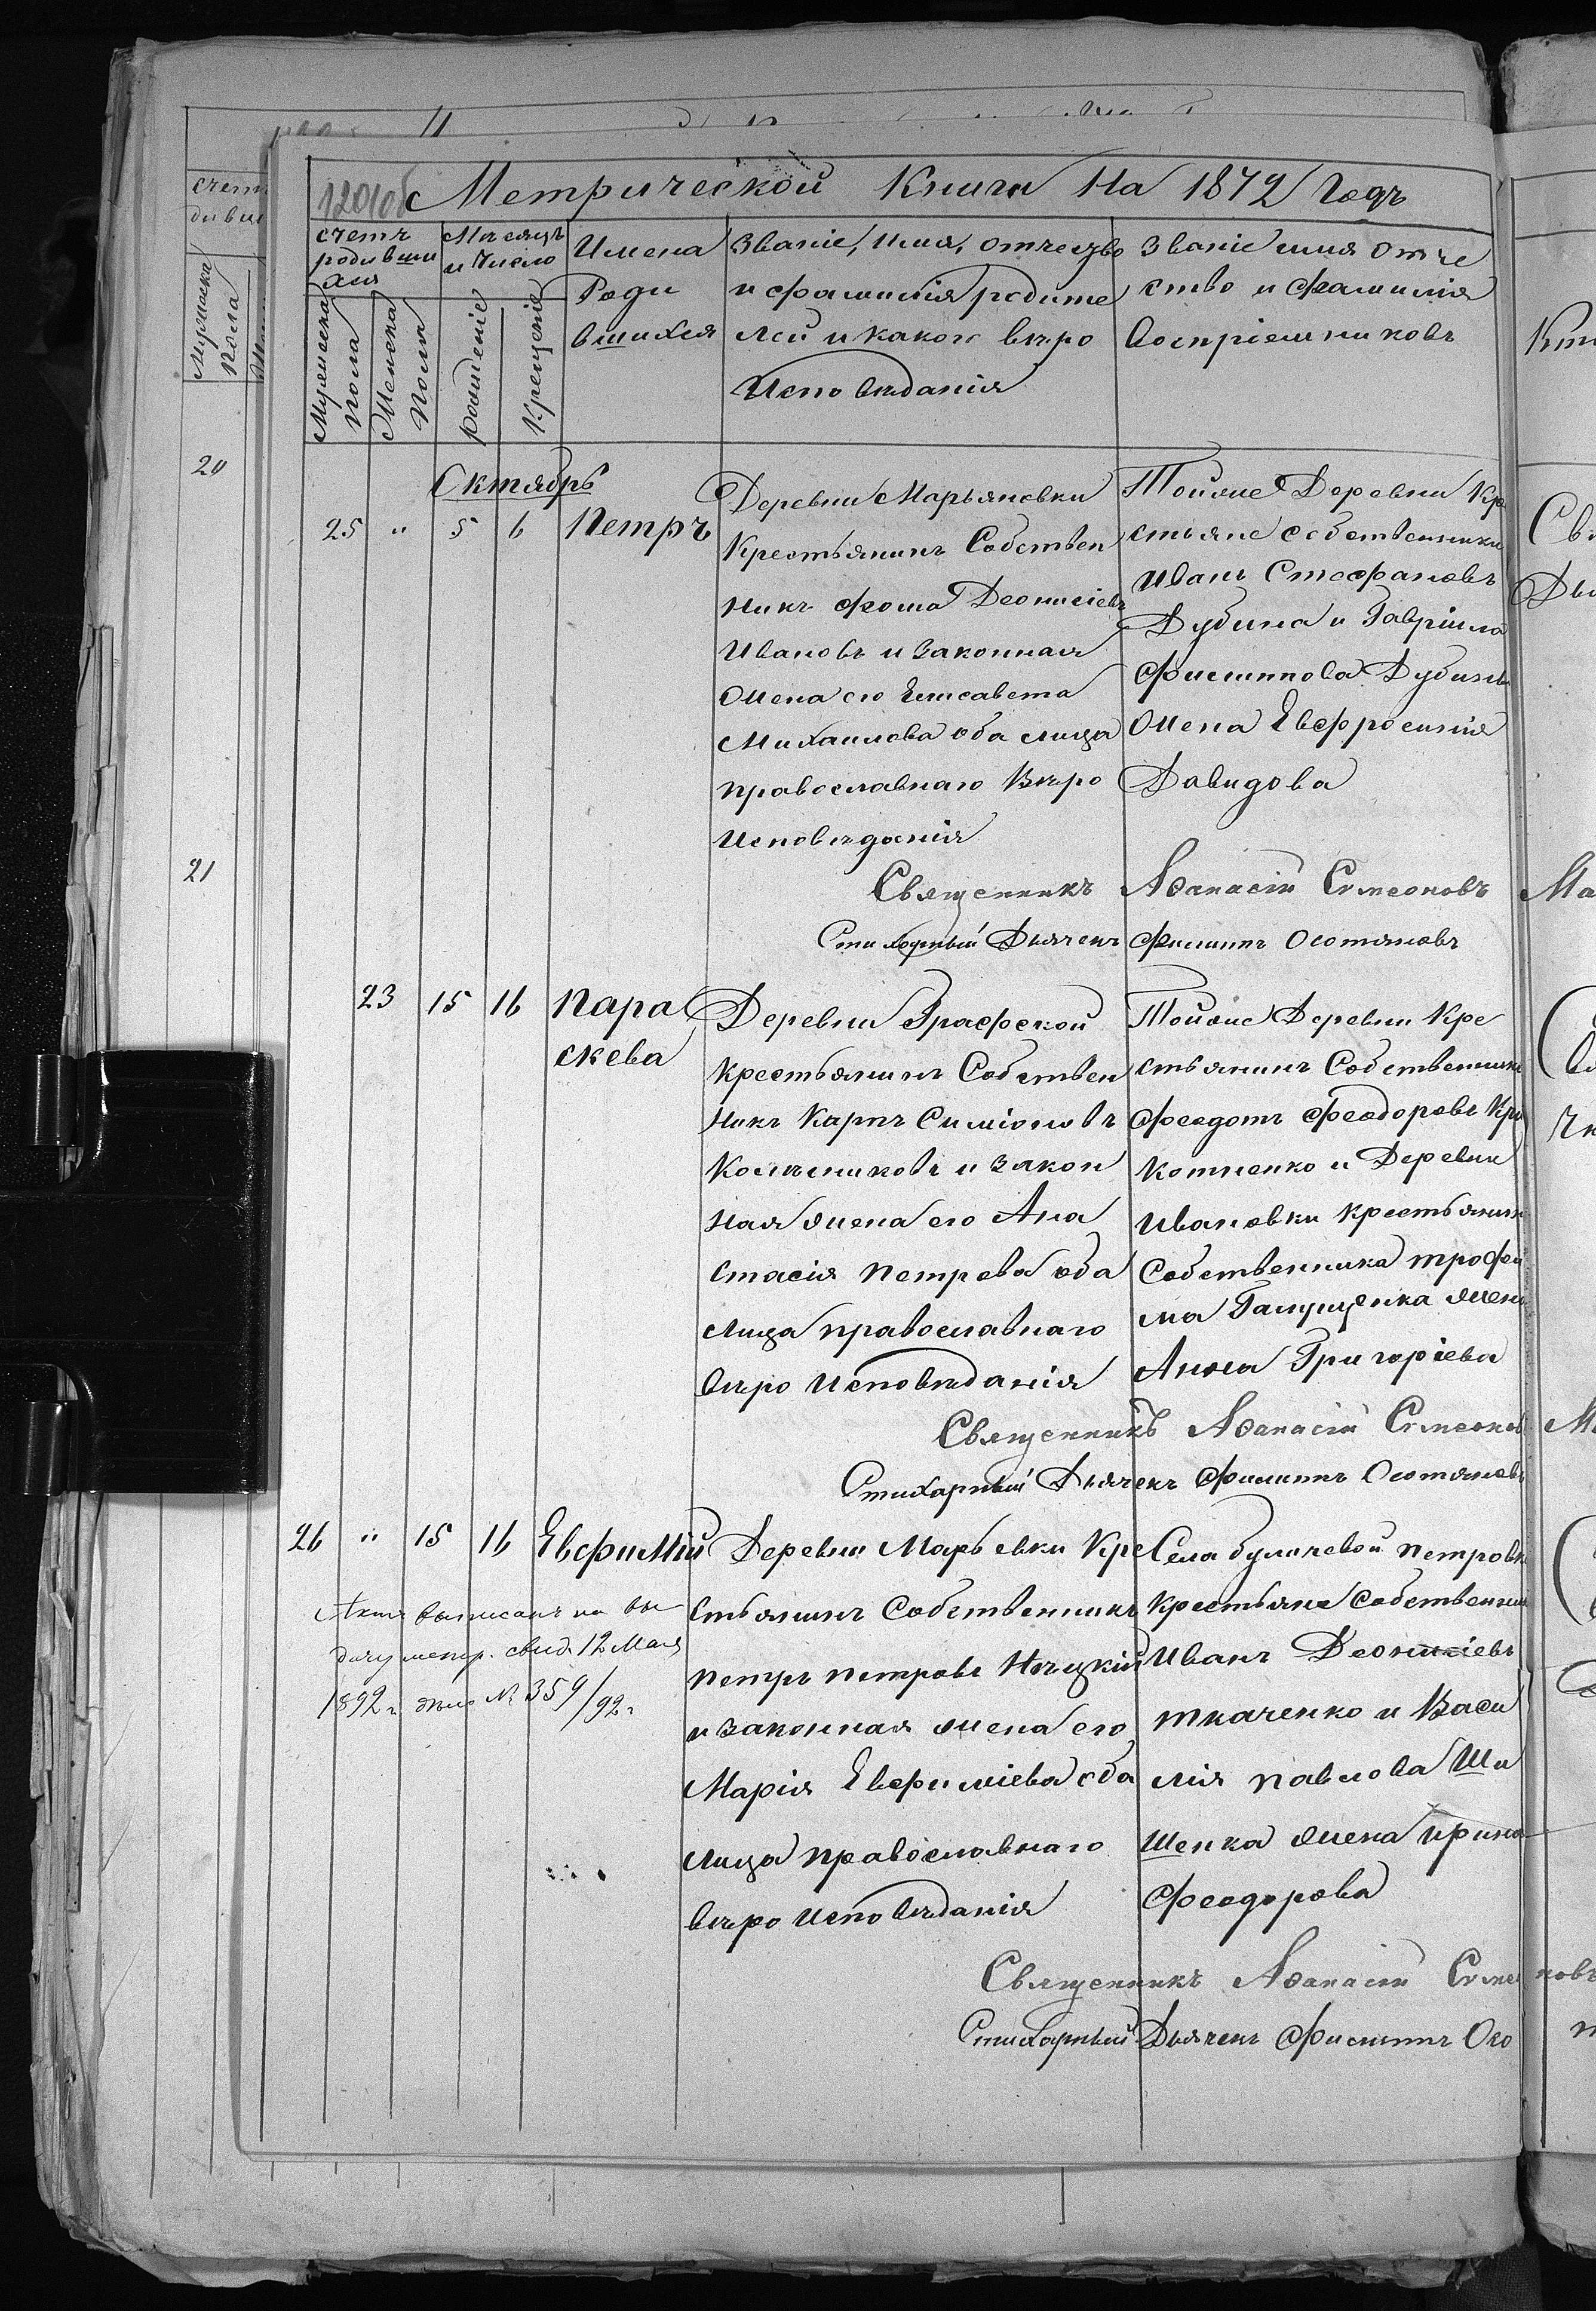 120 об
Метрической Книги На 1872 Годъ
счетъ родившихся
Мужеска пола
Женска пола
Месяцъ и Число
рожденіе
Крещеніе
Имена
Роди
вшихся
Званіе, имя, отчество
и фамилія родите
лей и какого веро
Исповѣданія
Званіе имя отче
ство и фамилія
Воспріемниковъ
Октябрь
25 " 5 6 Петръ
Деревни Марьяновки
Крестьянинъ Собствен
никъ Фома Деонисіевъ
Ивановъ и законная
жена его Елисавета
Михаилова оба лица
православнаго Вѣро
Исповѣданія
Тойже Деревни Кре
стьяне собственники
Иванъ Стефановъ
Дубина и Гавріила
Филиппова Дубины
жена Евфросинія
Давидова
Священникъ Аѳанасій Симеоновъ
Стихарный Дьячекъ Филиппъ
23 15 16 Пара
скева
Деревни Графской
крестьянинъ Собствен
никъ Карпъ Симіоновъ
Колѣсниковъ и закон
ная жена его Ана
стасія Петрова оба
лица православнаго
вѣро Исповѣданія
Тойже Деревни Кре
стьянинъ Собственникъ
Феодотъ Феодоровъ
и Деревни
Ивановки крестьянина
Собственника трофи
ма жена
Анна Григоріева
Священникъ Аѳанасій Симеонов
Стихарный Дьячекъ Филиппъ
26 " 15 16 Евфимій
Актъ выписанъ на вы
дачу метр. свид. 12 Мая
1892 г. дело № 359/92 г.
Деревни Марьевки Кре
стьянинъ Собственникъ
Петръ Петровъ
и законная жена его
Марія Евфиміева оба
лица православнаго
вѣро Исповѣданія
Села Петровки
крестьяне Собственники
Иванъ Деонисіевъ
ткаченко и Васи
лія Павлова Ши
шенка жена Ирина
Феодорова
Священникъ Аѳанасій Симе
новъ
Стихарный Дьячекъ Филиппъ
20
21